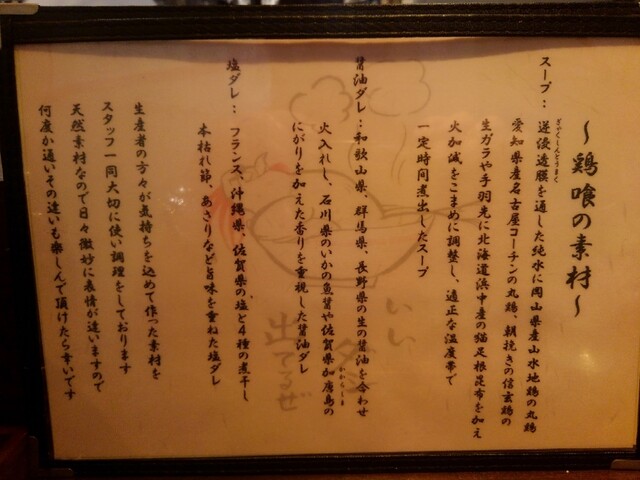 ～鶏喰の素材～
スープ：逆浸透膜を通した純水に岡山県産山水地鶏の丸鶏
ぎゃくしんとうまく
愛知県産名古屋コーチンの丸鶏、朝挽きの信玄鶏の
生ガラや手羽先に北海道浜中産の猫足根昆布を加え
火加減をこまめに調整し、適正な温度帯で
一定時間煮出したスープ
醤油ダレ：和歌山県、群馬県、長野県の生の醤油を合わせ
火入れし、石川県のいかの魚醤や佐賀県加唐島の
にがりを加えた香りを重視した醤油ダレ
塩ダレ：フランス、沖縄県、佐賀県の塩と4種の煮干し
本枯れ節、あさりなど旨味を重ねた塩ダレ
生産者の方々が気持ちを込めて作った素材を
スタッフ一同大切に使い調理をしております
天然素材なので日々微妙に表情が違いますので
何度か通いその違いも楽しんで頂けたら幸いです
いい
出てるぜ